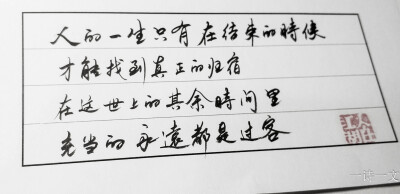 人的一生只有在结束的時候
才能找到真正的归宿
在这世上的其余時间里
充当的永遠都是过客